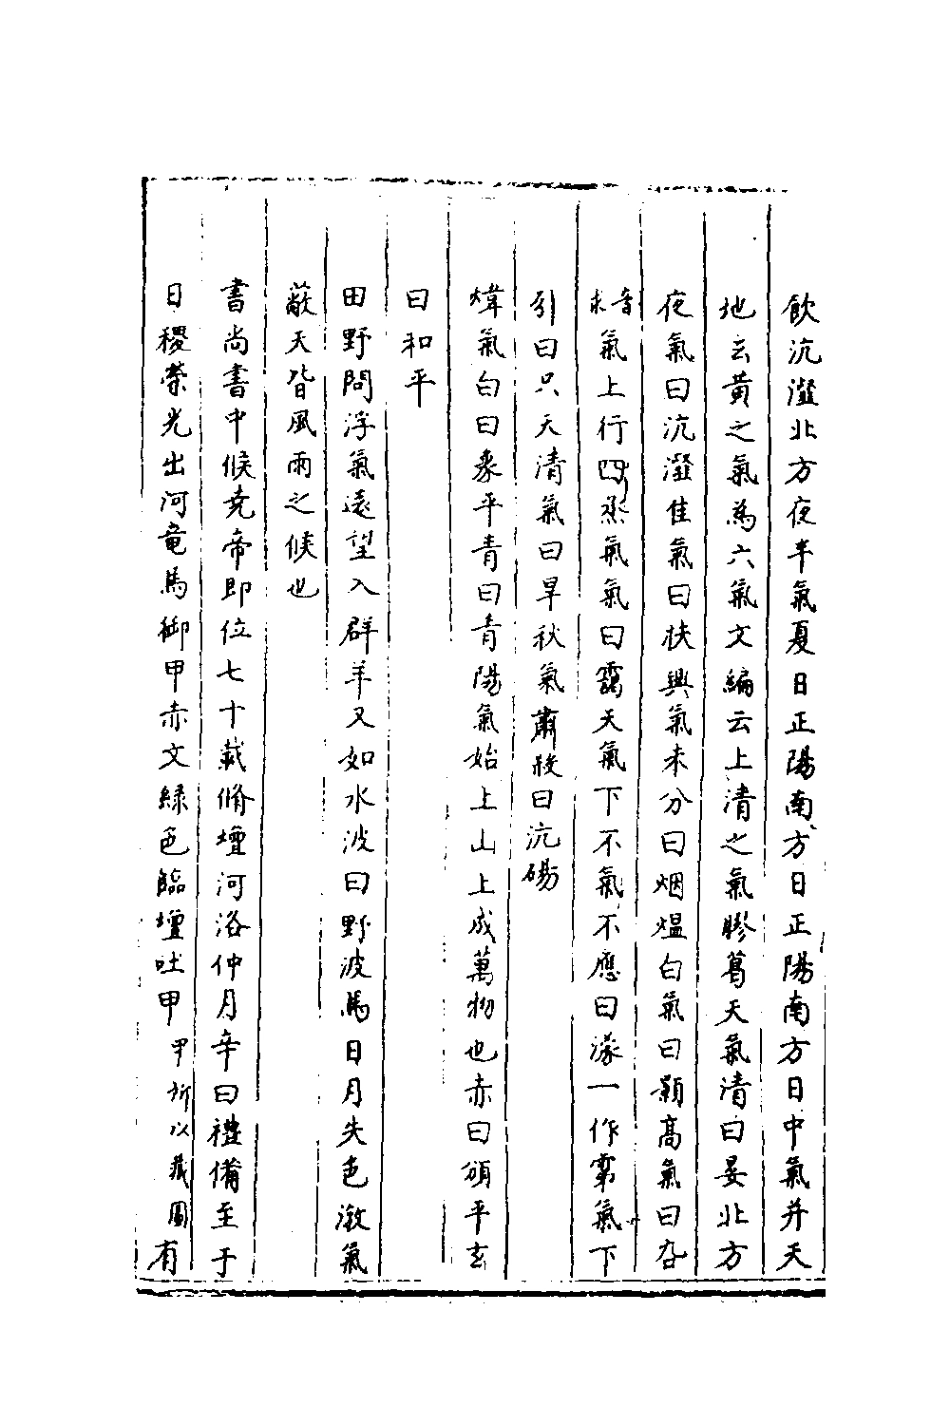 飲沆瀣北方夜半氣夏日正陽南方日正陽南方日中氣并天
地玄黃之氣爲六氣文編云上清之氣膠葛天氣清曰晏北方
夜氣曰沆瀣佳氣曰扶輿氣未分曰烟熅白氣曰顥高氣曰
音求氣上行四烝氣氣曰靄天氣下不氣不應曰濛一作霿氣下
引曰只天清氣曰旻秋氣肅殺曰沆碭
煒氣白曰彖平青曰青陽氣始上山上成萬物也赤曰頳平玄
曰和平
田野間浮氣遠望入群羊又如水波曰野波馬日月失色潡氣
蔽天皆風雨之候也
書尚書中候堯帝即位七十載脩壇河洛仲月辛曰禮備至于
日稷榮光出河竜馬御甲赤文綠色臨壇吐甲甲所以藏圖有